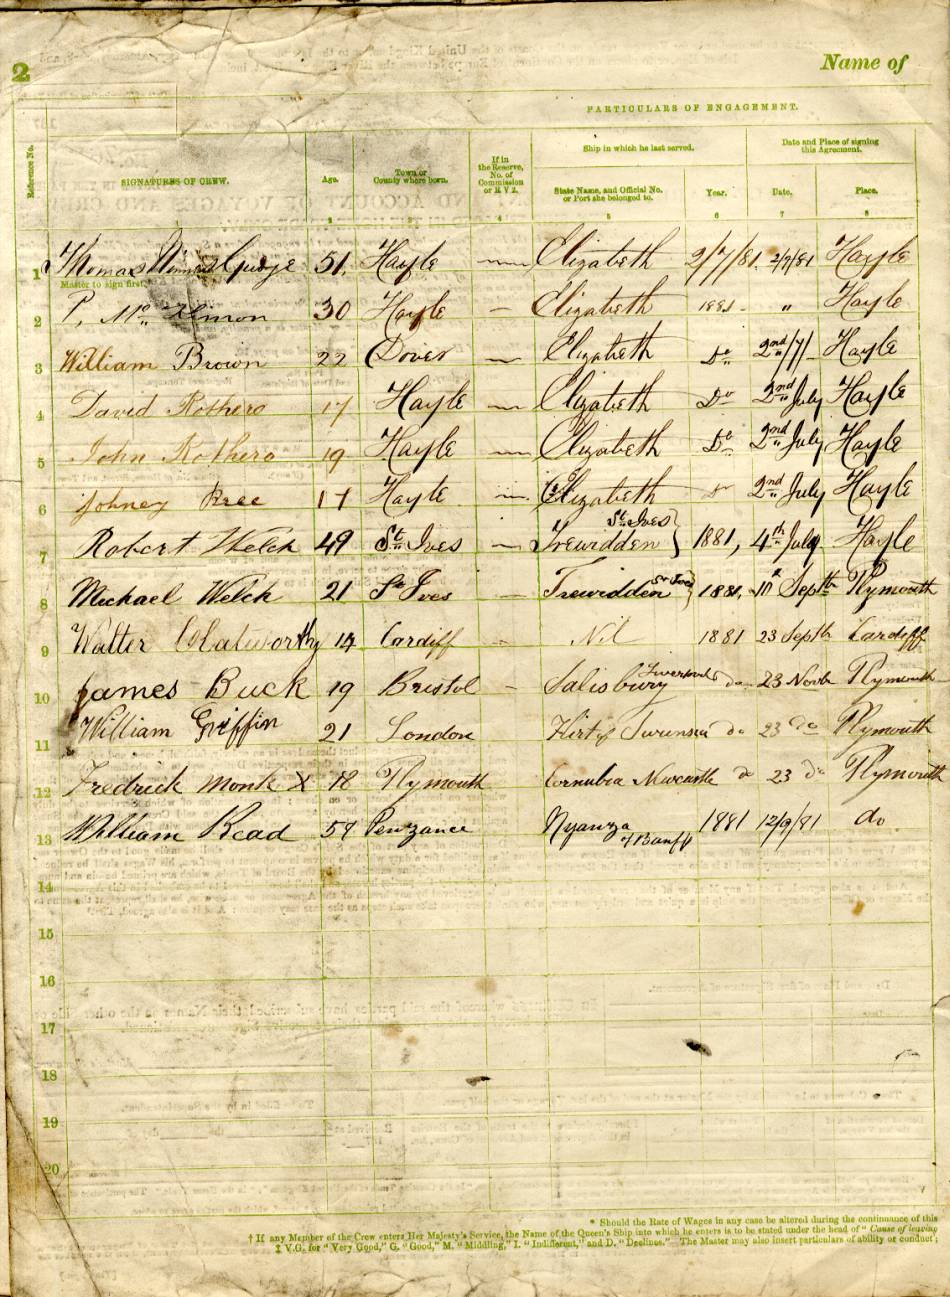 2
Name of
PARTICULARS OF ENGAGEMENT.
Reference No.
SIGNATURES OF CREW.
Age.
Town or County where born.
If in the Reserve, No. of Commission or R V 2.
Ship in which he last served.
State Name, and Official No. or Port she belonged to.
Year.
Date and Place of signing this Agreement.
Date.
Place.
1 2 3 4 5 6 7 8
1 Thomas Gudge 51 Hayle — Elizabeth 2/7/81 2/7/81 Hayle
Master to sign first.
2 P, Mc 30 Hayle — Elizabeth 1881 - " Hayle
3 William Brown 22 Dover — Elizabeth Do 2nd/7/ - Hayle
4 David Rothero 17 Hayle — Elizabeth Do 2nd July Hayle
5 John Rothero 19 Hayle — Elizabeth Do 2nd July Hayle
6 Johney Bree 17 Hayle — Elizabeth Do 2nd July Hayle
7 Robert Welch 49 St Ives — Trewidden St Ives } 1881, 4th July Hayle
8 Michael Welch 21 St Ives Trewidden St Ives } 1881, Septh Plymouth
9 Walter Chatworthy 19 Cardiff - Nil 1881 23 Septh Cardiff
10 James Buck 19 Bristol - Salisbury Liverpool do 23 Novb Plymouth
11 William Griffin 21 London Swansea do 23 do Plymouth
12 Fredrick Monk X 18 Plymouth Cornubia Newcastle do 23 do Plymouth
13 William Read 57 Penzance Nyanza of Banff 1881 12/9/81 do
14
15
16
17
18
19
20
* Should the Rate of Wages in any case be altered during the continuance of this
† If any Member of the Crew enters Her Majesty's Service, the Name of the Queen's Ship into which he enters is to be stated under the head of "Cause of leaving
‡ V.G. for "Very Good," G. "Good," M. "Middling," I. "Indifferent," and D. "Declines." The Master may also insert particulars of ability or conduct;